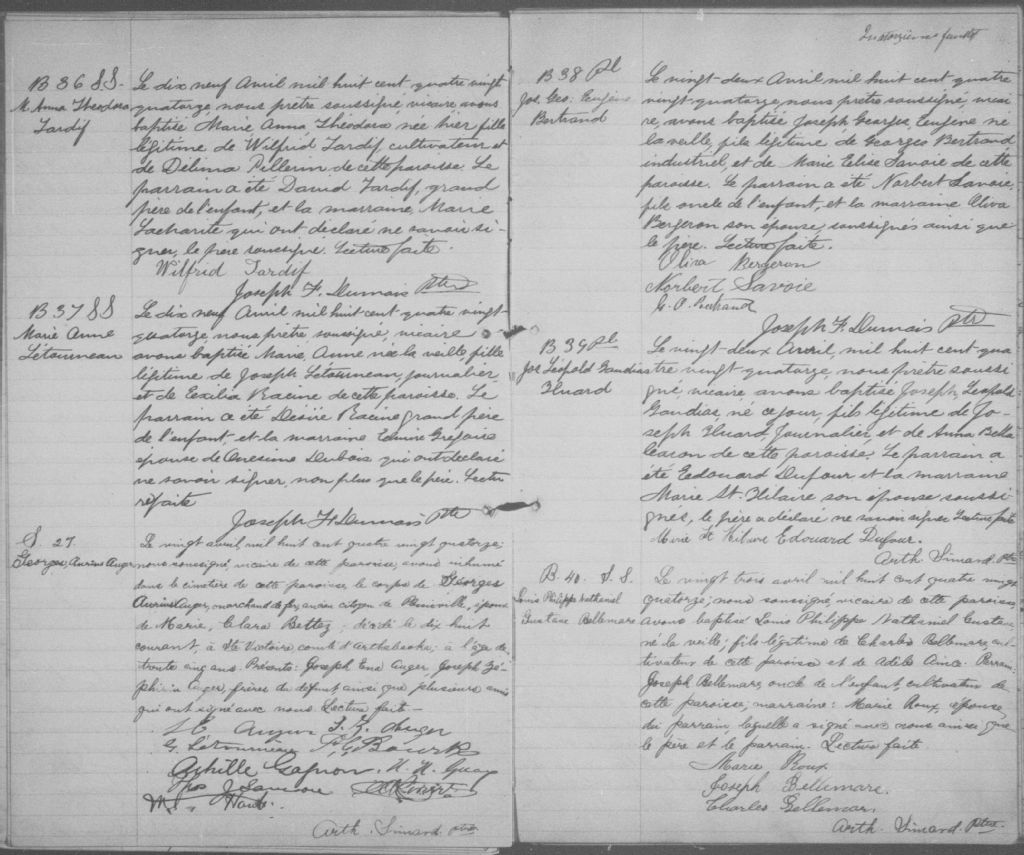 B 36 SS.
M. Anna Théodora
Tardif
Le dix neuf Avril mil huit cent quatre vingt
quatorze, nous prêtre soussigné, vicaire avons
baptisé Marie Anna Théodora née hier fille
légitime de Wilfrid Tardif cultivateur et
de Délima Pellerin de cette paroisse. Le
parrain a été David Tardif, grand
père de l'enfant, et la marraine, Marie
Lacharité qui ont déclaré ne savoir si-
gner, le père soussigné. Lecture faite.
Wilfrid Tardif
Joseph F. Dumais Ptre
B 37 SS
Marie Anne
Létourneau
Le dix neuf Avril mil huit cent quatre vingt-
quatorze, nous prêtre soussigné, vicaire
avons baptisé Marie, Anne née la veille, fille
légitime de Joseph Létourneau, journalier,
et de Exilia Racine de cette paroisse. Le
parrain a été Désiré Racine, grand père
de l'enfant, et la marraine Edmire Grégoire
épouse de Onésime Dubois qui ont déclaré
ne savoir signer, non plus que le père. Lectu
re faite
Joseph F. Dumais Ptre
S. 27
Georges, Aurius Auger
Le vingt avril mil huit cent quatre vingt quatorze;
nous soussigné, vicaire de cette paroisse, avons inhumé
dans le cimetière de cette paroisse, le corps de Georges
Aurius Auger, marchand de fer, ancien citoyen de Plessisville, époux
de Marie, Clara Bettez, décédé le dix huit
courant, à Ste Victoire comté d'Arthabaska, à l'âge de
trente cinq ans. Présents: Joseph Ene Auger, Joseph Zé-
phirin Auger, frères du défunt ainsi que plusieurs amis
qui ont signé avec nous. Lecture faite —
J. E. Auger J. Z. Auger
G. Létourneau
Achille Gagnon
Arth. Simard. ptre
B 38 Pl
Jos. Geo: Eugène
Bertrand
Le vingt-deux Avril mil huit cent quatre
vingt-quatorze, nous prêtre soussigné, vicai
re, avons baptisé Joseph Georges, Eugène né
la veille, fils légitime de Georges Bertrand
industriel, et de Marie Elise Savoie de cette
paroisse. Le parrain a été Norbert Savoie,
fils oncle de l'enfant, et la marraine Oliva
Bergeron son épouse, soussignés ainsi que
le père. Lecture faite.
Oliva Bergeron
Norbert Savoie
G. O. Bertrand
Joseph F. Dumais Ptr
B 39 Pl
Jos Léopold Gaudias
Huard
Le vingt-deux Avril, mil huit cent qua
tre vingt quatorze, nous prêtre soussi
gné, vicaire avons baptisé Joseph, Léopold
Gaudias, né ce jour, fils légitime de Jo-
seph Huard, Journalier, et de Anna Bella
de cette paroisse. Le parrain a
été Edouard Dufour et la marraine
Marie St. Hilaire son épouse soussi
gnés, le père a déclaré ne savoir signer Lecture faite
Marie St Hilaire Edouard Dufour.
Arth. Simard. Ptre
B. 40. S. S.
Louis Philippe Nathaniel
Gustave Bellemare
Le vingt trois avril mil huit cent quatre vingt
quatorze; nous soussigné, vicaire de cette paroisse,
avons baptisé Louis Philippe Nathaniel Gustave
né la veille; fils légitime de Charles Bellemare, cul-
tivateur de cette paroisse et de Adèle Parrain:
Joseph Bellemare, oncle de l'enfant, cultivateur de
cette paroisse; marraine: Marie Roux, épouse
du parrain, laquelle a signé avec nous ainsi que
le père et le parrain. Lecture faite.
Marie Roux
Joseph Bellemare.
Charles Bellemare.
Arth. Simard. Ptre